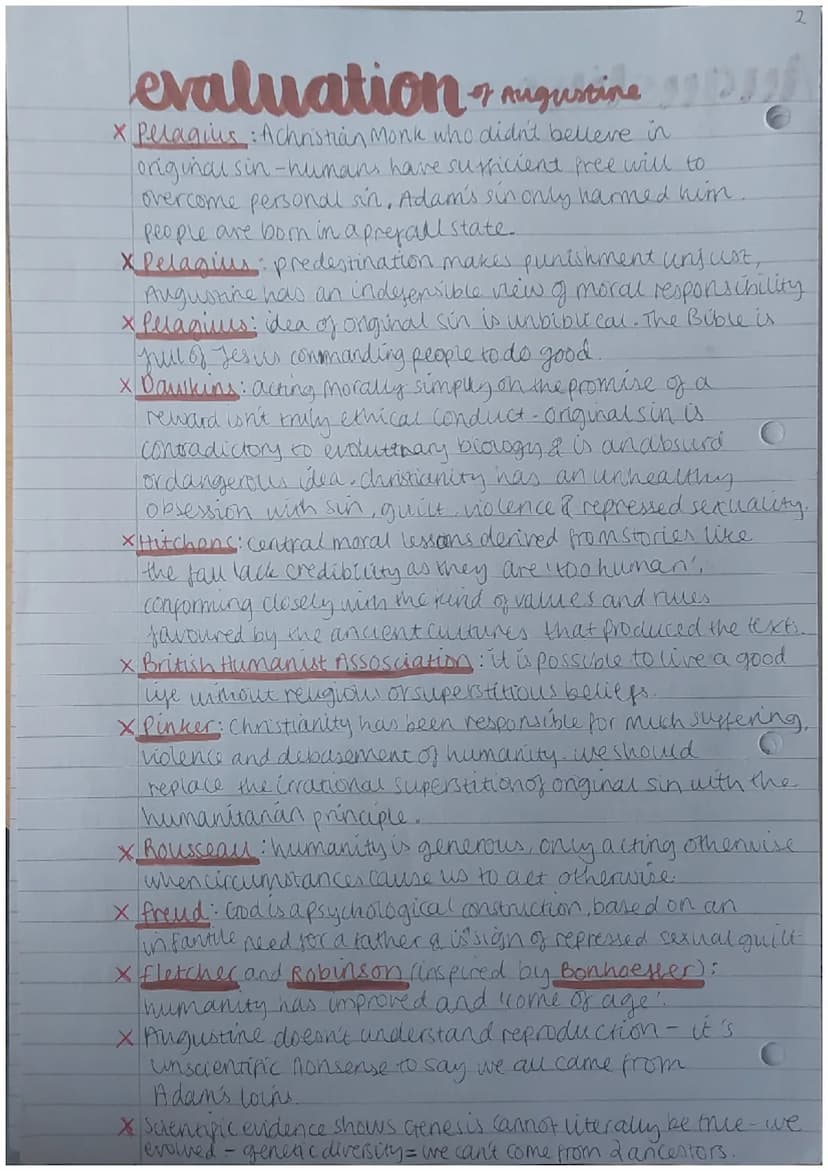 2
evaluation of Augustine
x Pelagius : A christian monk who didn't believe in
original sin - humans have sufficient free will to
overcome personal sin, Adam's sin only harmed him.
people are born in a prefall state.
x Pelagius : predestination makes punishment unjust,
Augustine has an indefensible view of moral responsibility
x Pelagius: idea of original sin is unbiblical. The Bible is
full of Jesus commanding people to do good.
x Dawkins: acting morally simply on the promise of a
reward isn't truly ethical conduct - original sin is
contradictory to evolutinary biology & is an absurd
or dangerous idea. christianity has an unhealthy
obsession with sin, guilt, violence & repressed sexuality.
x Hitchens: central moral lessons derived from stories like
the fall lack credibility as they are 'too human',
conforming closely with the kind of values and rules
favoured by the ancient cultures that produced the texts.
x British Humanist Assosciation : it is possible to live a good
life without religious or superstitious beliefs.
x Pinker: Christianity has been responsible for much suffering,
violence and debasement of humanity. we should
replace the irrational superstition of original sin with the
humanitarian principle.
x Rousseau : humanity is generous, only acting otherwise
when circumstances cause us to act otherwise.
x freud: God is a psychological construction, based on an
infantile need for a father & is sign of repressed sexual guilt
x Fletcher and Robinson (inspired by Bonhoeffer):
humanity has improved and 'come of age'.
x Augustine doesn't understand reproduction - it's
unscientific nonsense to say we all came from
Adam's loins.
x Scientific evidence shows Genesis cannot literally be true - we
evolved - genetic diversity = we can't come from 2 ancestors.